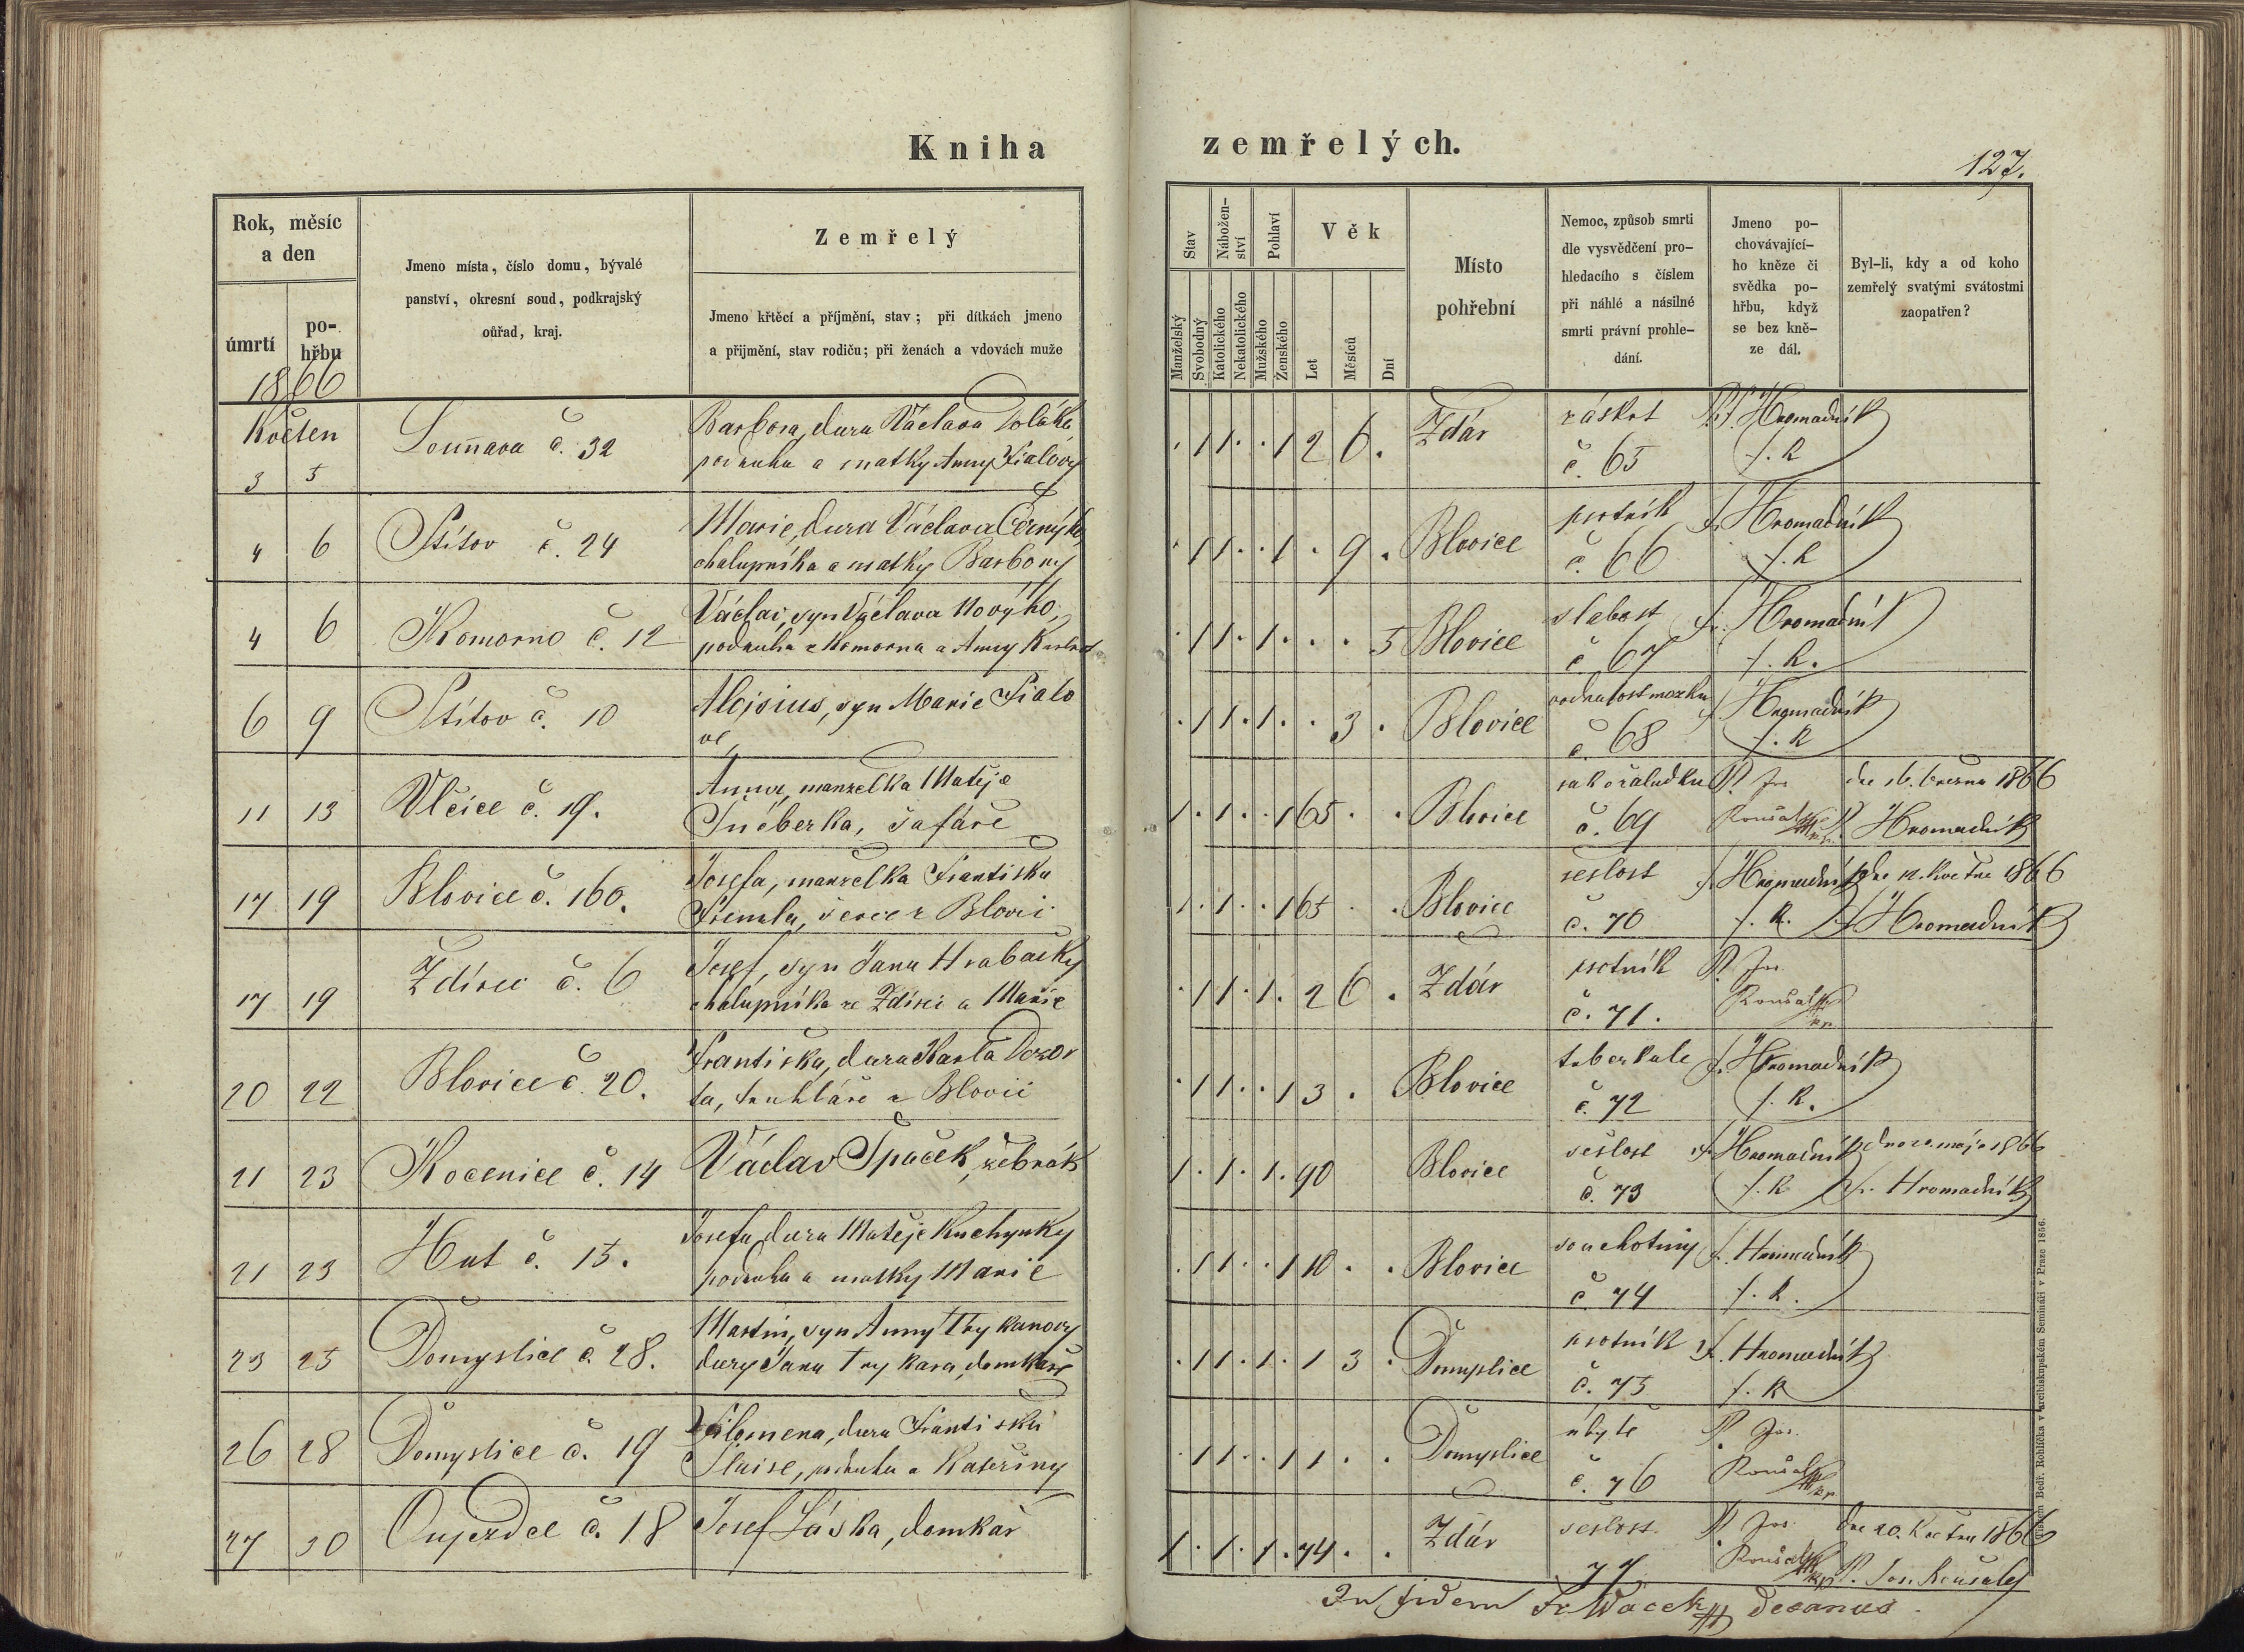 Kniha zemřelých.
127.
Rok, měsíc
a den
úmrtí
po-
hřbu
1866
Jmeno místa, číslo domu, bývalé
panství, okresní soud, podkrajský
ouřad, kraj.
Zemřelý
Jmeno křtěcí a příjmění, stav; při dítkách jmeno
a přijmění, stav rodičů; při ženách a vdovách muže
Stav
Nábožen-
ství
Pohlaví
Věk
Manželský
Svobodný
Katolického
Nekatolického
Mužského
Ženského
Let
Měsíců
Dní
Místo
pohřební
Nemoc, způsob smrti
dle vysvědčení pro-
hledacího s číslem
při náhlé a násilné
smrti právní prohle-
dání.
Jmeno po-
chovávající-
ho kněze či
svědka po-
hřbu, když
se bez kně-
ze dál.
Byl-li, kdy a od koho
zemřelý svatými svátostmi
zaopatřen?
Květen
3 5 č. 32 Barbora, dcera Václava Poláka,
podruha a matky Anny Fialovy
. 1 1 . . 1 2 6 . Ždár záskrt č. 65 Hromadník f. R
4 6 Štítov č. 24 Marie, dcera Václava Černýho,
chalupníka a matky Barbory
. 1 1 . . 1 . 9 . Blovice psotník č. 66 Hromadník f. R
4 6 Komorno č. 12 Václav, syn Václava Novýho,
podruha z Komorna a Anny
. 1 1 . 1 . . . 5 Blovice slabost č 67 Hromadník f. R.
6 9 Štítov č. 10 Aloisius, syn Marie Fialo
vé
. 1 1 . 1 . . 3 . Blovice vodnatost mozku č. 68 Hromadník f. R
11 13 Vlčice č. 19. Anna, manželka Matěje
šafáře
1 . 1 . . 1 65 . . Blovice rak žaludku č. 69 P. Jos. Koušal dne 16. března 1866
Hromadník
17 19 Blovice č. 160. Josefa, manželka Františka
ševce z Blovic
1 . 1 . . 1 65 . . Blovice sešlost č. 70 Hromadník f. R. dne 12. května 1866
Hromadník
17 19 Ždírec č. 6 Josef, syn Jana Hrabačky
chalupníka ze Ždírce a Marie
. 1 1 . 1 . 2 6 . Ždár psotník č. 71. P. Jos. Koušal
20 22 Blovice č. 20. Františka, dcera Karla
ta, truhláře z Blovic
. 1 1 . . 1 3 . Blovice tuberkule č. 72 Hromadník f. R.
21 23 Kocenice č. 14 Václav Špaček, žebrák
1 . 1 . 1 . 90 Blovice sešlost č. 73 Hromadník f. R dne 20 máje 1866
Fr. Hromadník
21 23 Huť č. 15. Josefa, dcera Matěje Kuchynky
podruha a matky Marie
. 1 1 . . 1 10 . . Blovice souchotiny č. 74 Hromadník f. R.
23 25 Domyslice č. 28. Martin, syn Anny Trykarovy
dcery Jana Trykara, domkáře
. 1 1 . 1 . 1 3 . Domyslice psotník č. 75 Fr. Hromadník f. R
26 28 Domyslice č. 19 Filomena, dcera Františka
podruha a Kateřiny
. 1 1 . . 1 1 . . Domyslice úbytě č. 76 P. Jos. Koušal
27 30 Oujezdec č. 18 Josef Láska, domkář
1 . 1 . 1 . 74 . . Ždár sešlost 77 P. Jos. Koušal dne 20. května 1866
P. Jos. Koušal
In fidem Fr. Wacek decanus.
Tiskem Bedř. Rohlíčka v arcibiskupském Seminári v Praze 1856.